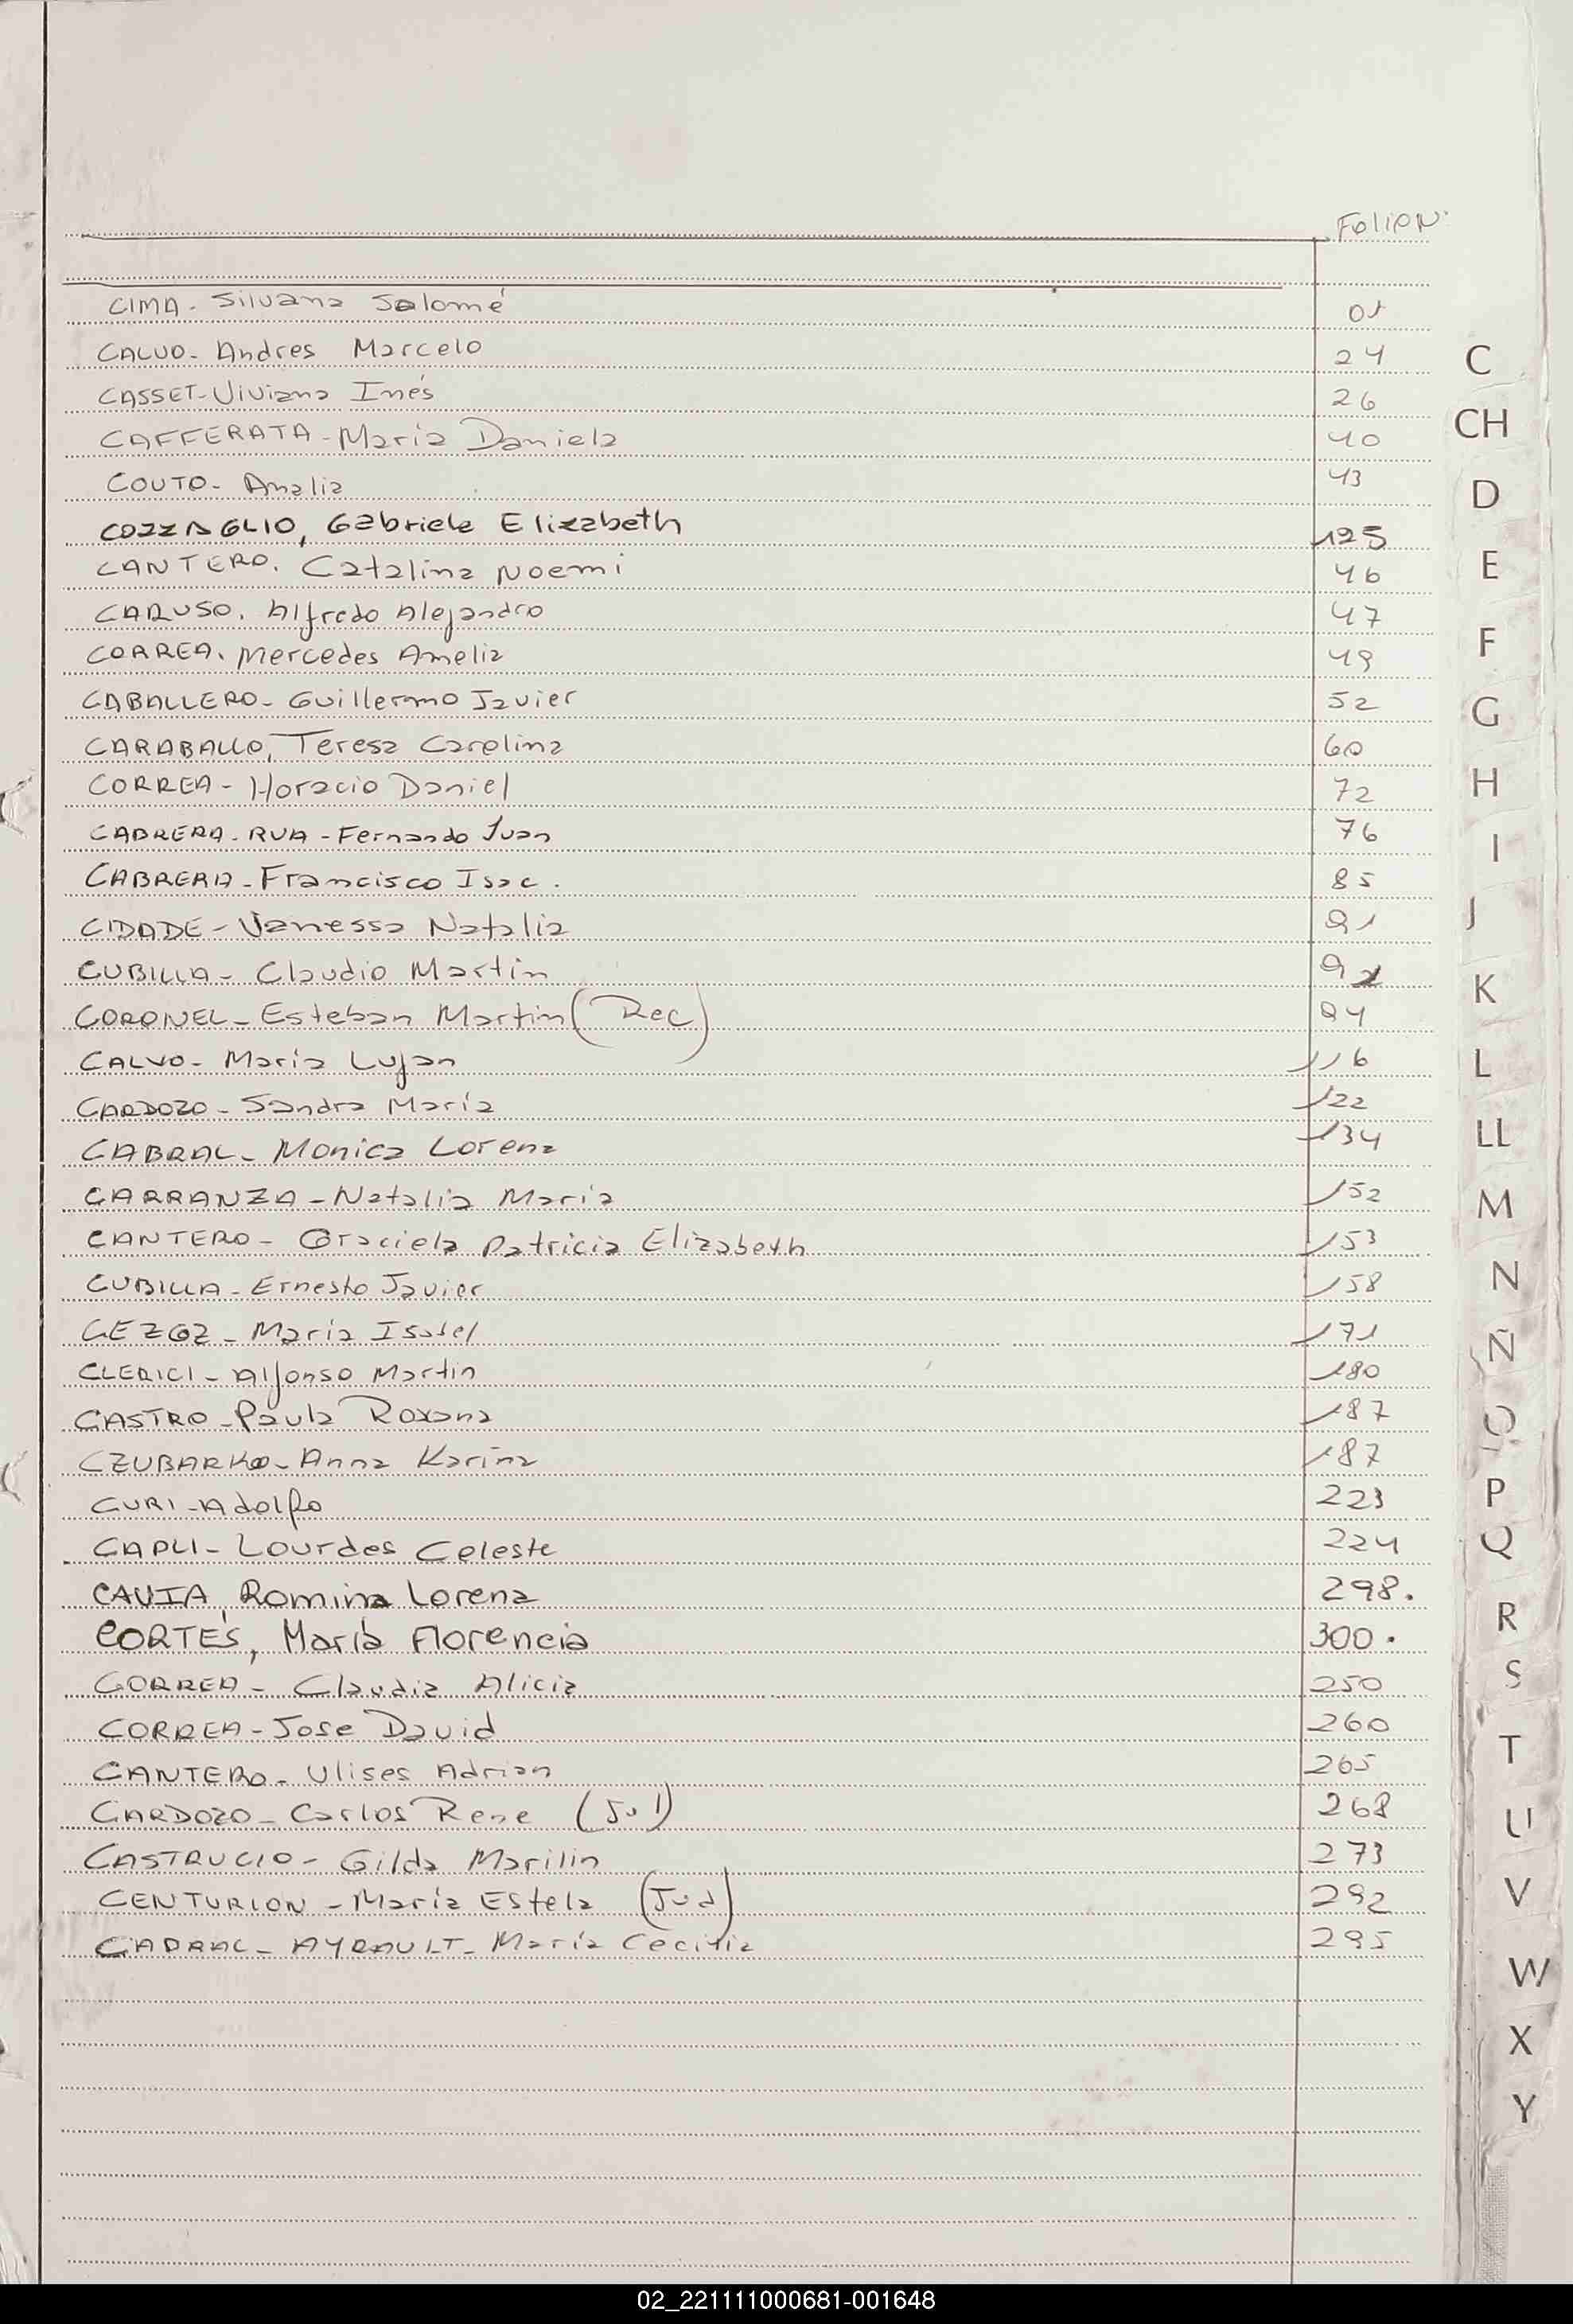 Folio N°
CIMA - Silvana Salomé 01
CALVO - Andres Marcelo 24
CASSET - Viviana Inés 26
CAFFERATA - María Daniela 40
COUTO - Analia 43
COZZAGLIO, Gabriela Elizabeth 125
CANTERO. Catalina Noemi 46
CARUSO. Alfredo Alejandro 47
CORREA. Mercedes Amelia 49
CABALLERO - Guillermo Javier 52
CARABALLO, Teresa Carolina 60
CORREA - Horacio Daniel 72
CABRERA - RUA - Fernando Juan 76
CABRERA - Francisco Isac. 85
CIDADE - Vanessa Natalia 91
CUBILLA - Claudio Martín 92
CORONEL - Esteban Martin (Rec) 94
CALVO - María Lujan 116
CARDOZO - Sandra María 122
CABRAL - Monica Lorena 134
CARRANZA - Natalia María 152
CANTERO - Graciela Patricia Elizabeth 153
CUBILLA - Ernesto Javier 158
- María Isabel 171
CLERICI - Alfonso Martin 180
CASTRO - Paula Roxana 187
CZUBARKO - Anna Karina 187
CURI - Adolfo 223
CAPLI - Lourdes Celeste 224
CAVIA, Romina Lorena 298.
CORTÉS, María Florencia 300.
CORREA - Claudia Alicia 250
CORREA - Jose David 260
CANTERO - Ulises Adrian 265
CARDOZO - Carlos Rene 268
CASTRUCIO - Gilda Marilin 273
CENTURION - María Estela (Jud) 292
CABRAL - AYRAULT - María Cecilia 295
C
CH
D
E
F
G
H
I
J
K
L
LL
M
N
Ñ
O
P
Q
R
S
T
U
V
W
X
Y
02_221111000681-001648